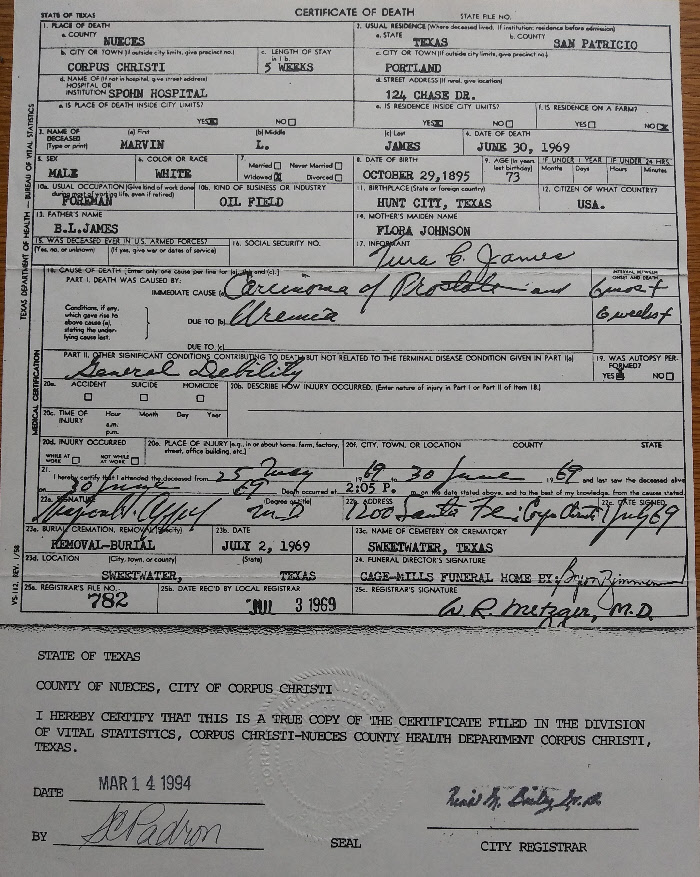 STATE OF TEXAS
CERTIFICATE OF DEATH
STATE FILE NO.
TEXAS DEPARTMENT OF HEALTH — BUREAU OF VITAL STATISTICS
1. PLACE OF DEATH
a. COUNTY
NUECES
2. USUAL RESIDENCE (Where deceased lived. If institution: residence before admission)
a. STATE
TEXAS
b. COUNTY
SAN PATRICIO
b. CITY OR TOWN (If outside city limits, give precinct no.)
CORPUS CHRISTI
c. LENGTH OF STAY
in 1 b.
5 WEEKS
c. CITY OR TOWN (If outside city limits, give precinct no.)
PORTLAND
d. NAME OF (If not in hospital, give street address)
HOSPITAL OR
INSTITUTION SPOHN HOSPITAL
d. STREET ADDRESS (If rural, give location)
124 CHASE DR.
e. IS PLACE OF DEATH INSIDE CITY LIMITS?
YES NO
e. IS RESIDENCE INSIDE CITY LIMITS?
YES NO
f. IS RESIDENCE ON A FARM?
YES NO
3. NAME OF
DECEASED
(Type or print)
(a) First
MARVIN
(b) Middle
L.
(c) Last
JAMES
4. DATE OF DEATH
JUNE 30, 1969
5. SEX
MALE
6. COLOR OR RACE
WHITE
7. Married Never Married
Widowed Divorced
8. DATE OF BIRTH
OCTOBER 29,1895
9. AGE (In years
last birthday)
73
IF UNDER 1 YEAR
Months Days
IF UNDER 24 HRS.
Hours Minutes
10a. USUAL OCCUPATION (Give kind of work done
during most of working life, even if retired)
FOREMAN
10b. KIND OF BUSINESS OR INDUSTRY
OIL FIELD
11. BIRTHPLACE (State or foreign country)
HUNT CITY, TEXAS
12. CITIZEN OF WHAT COUNTRY?
USA.
13. FATHER'S NAME
B.L.JAMES
14. MOTHER'S MAIDEN NAME
FLORA JOHNSON
15. WAS DECEASED EVER IN U.S. ARMED FORCES?
(Yes, no, or unknown) (If yes, give war or dates of service)
16. SOCIAL SECURITY NO.
17. INFORMANT
C. James
MEDICAL CERTIFICATION
18. CAUSE OF DEATH [Enter only one cause per line for (a), (b), and (c).]
PART I. DEATH WAS CAUSED BY:
IMMEDIATE CAUSE (a) Carcinoma of Prostate and
INTERVAL BETWEEN
ONSET AND DEATH
6 mos +
Conditions, if any,
which gave rise to
above cause (a),
stating the under-
lying cause last.
DUE TO (b) Uremia
6 weeks +
DUE TO (c)
PART II. OTHER SIGNIFICANT CONDITIONS CONTRIBUTING TO DEATH BUT NOT RELATED TO THE TERMINAL DISEASE CONDITION GIVEN IN PART I(a)
General Debility
19. WAS AUTOPSY PER-
FORMED?
YES NO
20a. ACCIDENT SUICIDE HOMICIDE
20b. DESCRIBE HOW INJURY OCCURRED. (Enter nature of injury in Part I or Part II of item 18.)
20c. TIME OF
INJURY
Hour Month Day Year
a.m.
p.m.
20d. INJURY OCCURRED
WHILE AT WORK NOT WHILE AT WORK
20e. PLACE OF INJURY (e.g., in or about home, farm, factory,
street, office building, etc.)
20f. CITY, TOWN, OR LOCATION COUNTY STATE
21.
I hereby certify that I attended the deceased from 25 May 1969 to 30 June 1969 and last saw the deceased alive
on 30 June 69 Death occurred at 2:05 P. m. on the date stated above, and to the best of my knowledge, from the causes stated.
22a. SIGNATURE (Degree or title)
M.D
22b. ADDRESS
1200 Santa Fe
22c. DATE SIGNED
July 69
23a. BURIAL, CREMATION, REMOVAL (Specify)
REMOVAL-BURIAL
23b. DATE
JULY 2, 1969
23c. NAME OF CEMETERY OR CREMATORY
SWEETWATER, TEXAS
23d. LOCATION (City, town, or county) (State)
SWEETWATER, TEXAS
24. FUNERAL DIRECTOR'S SIGNATURE
CAGE-MILLS FUNERAL HOME BY: Byron Zimmerman
25a. REGISTRAR'S FILE NO.
782
25b. DATE REC'D BY LOCAL REGISTRAR
JUL 3 1969
25c. REGISTRAR'S SIGNATURE
W. R. Metzger, M.D.
VS 112, REV. 1/58
STATE OF TEXAS
COUNTY OF NUECES, CITY OF CORPUS CHRISTI
I HEREBY CERTIFY THAT THIS IS A TRUE COPY OF THE CERTIFICATE FILED IN THE DIVISION
OF VITAL STATISTICS, CORPUS CHRISTI-NUECES COUNTY HEALTH DEPARTMENT CORPUS CHRISTI,
TEXAS.
DATE MAR 14 1994
BY Padron
SEAL
CITY REGISTRAR